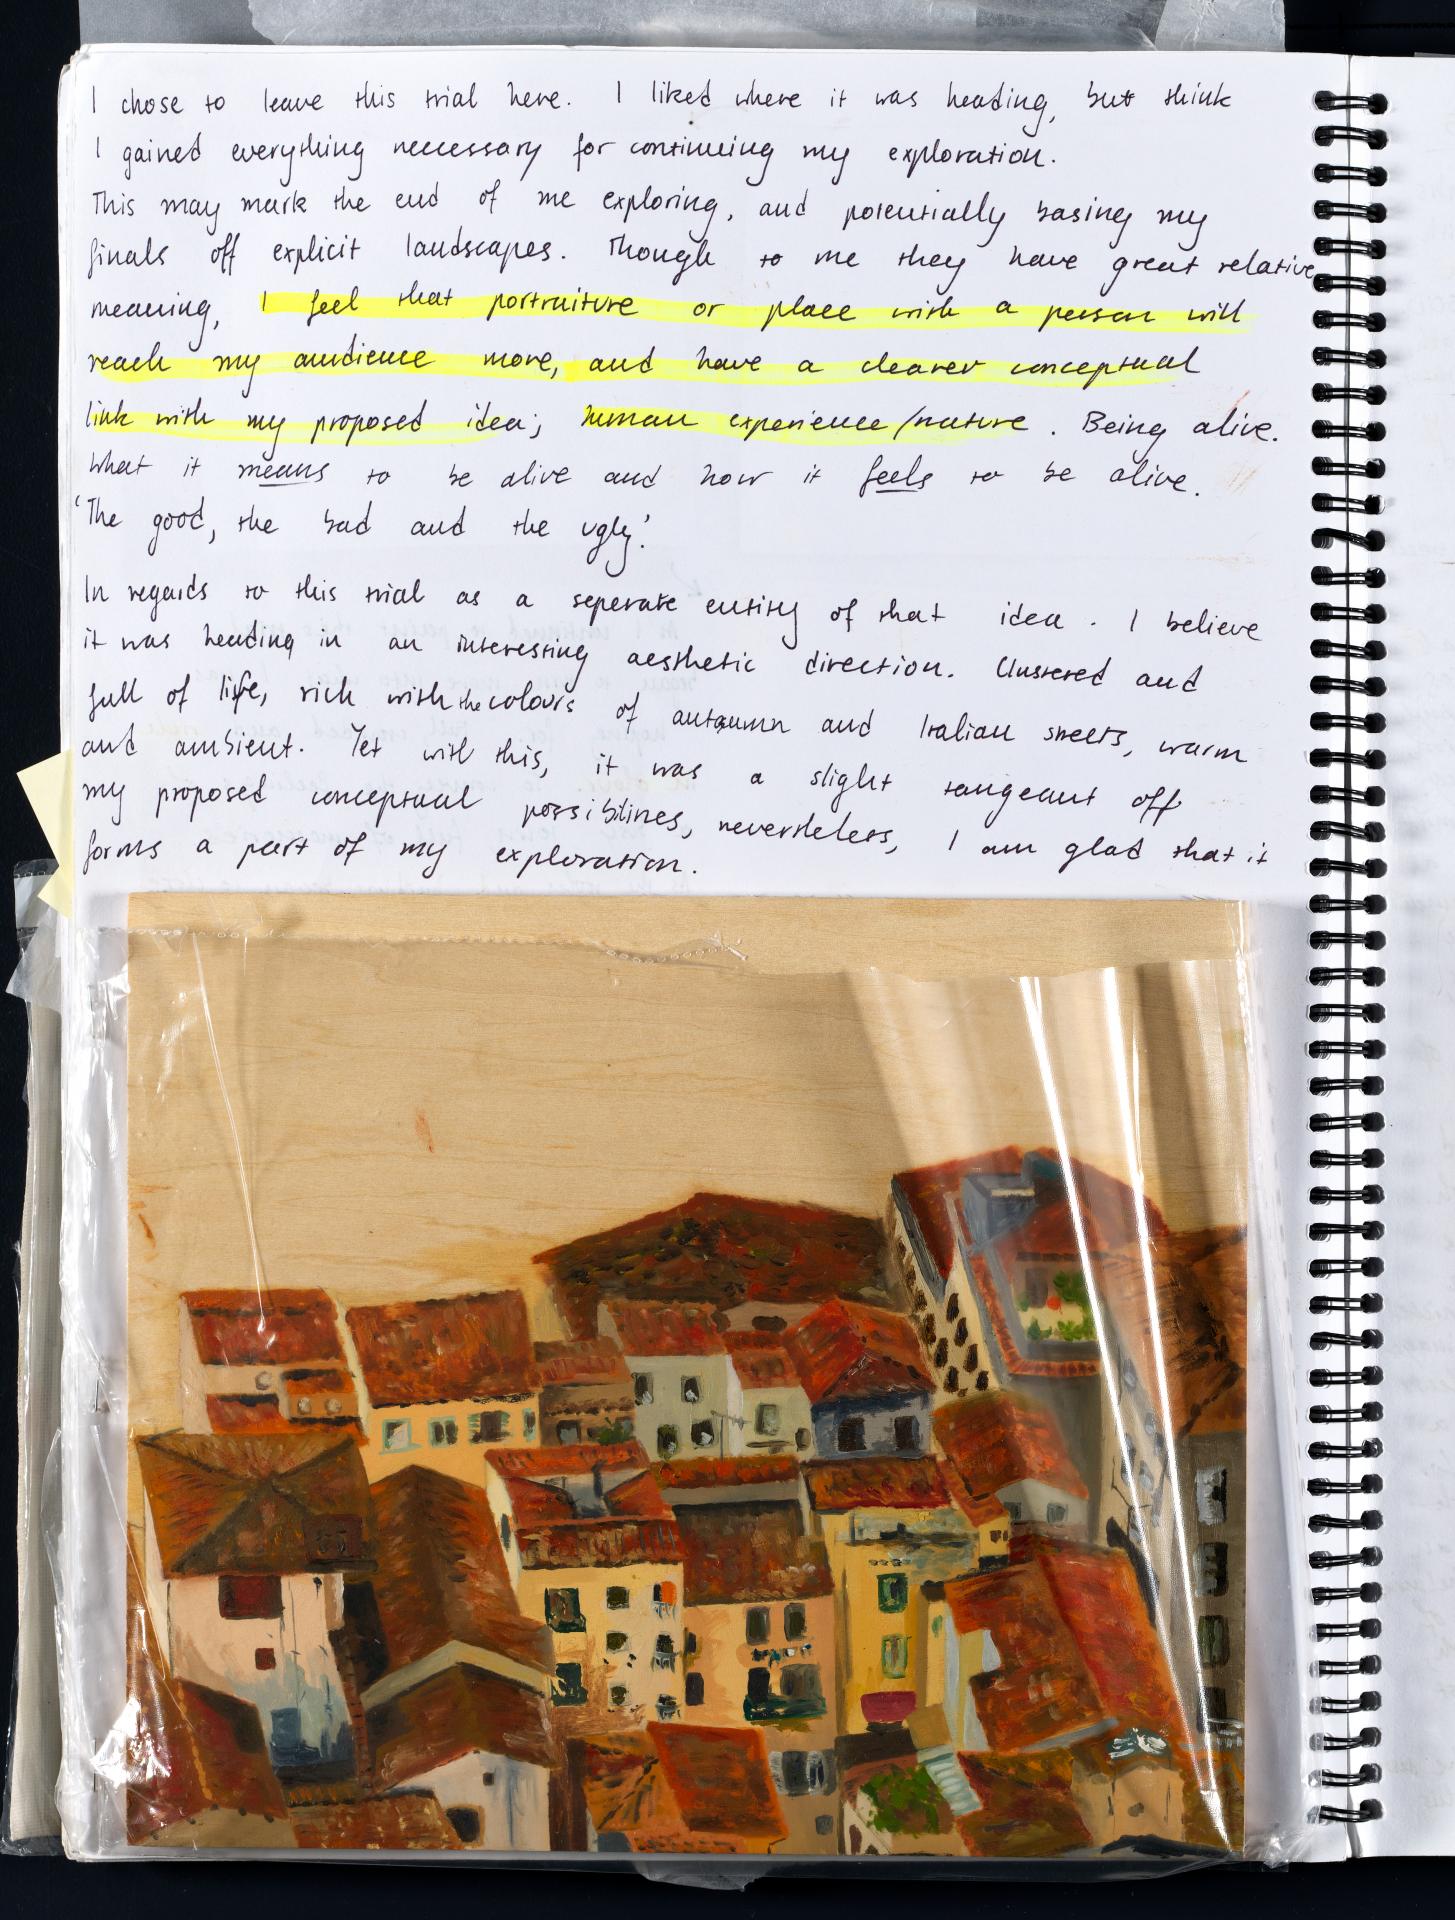 I chose to leave this trial here. I liked where it was heading, but think
I gained everything neccessary for continuing my exploration.
This may mark the end of me exploring, and potentially basing my
finals off explicit landscapes. Though to me they have great relative
meaning, I feel that portraiture or place with a person will
reach my audience more, and have a clearer conceptual
link with my proposed idea; human experience/nature. Being alive.
What it means to be alive and how it feels to be alive.
'The good, the bad and the ugly.'
In regards to this trial as a seperate entity of that idea. I believe
it was heading in an interesting aesthetic direction. Clustered and
full of life, rich with the colours of autumn and Italian streets, warm
and ambient. Yet with this, it was a slight tangeant off
my proposed conceptual possibilities, nevertheless, I am glad that it
forms a part of my exploration.